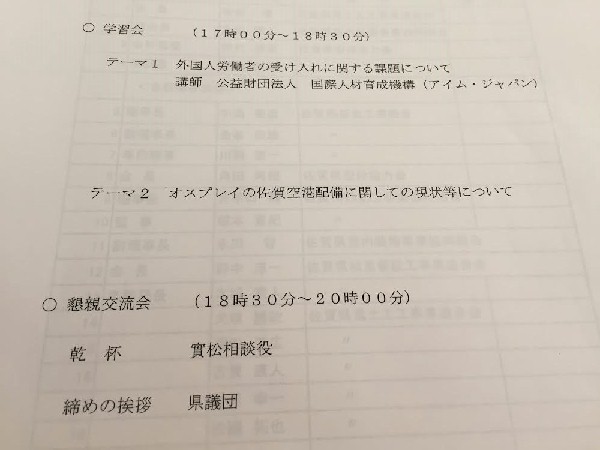 ○ 学習会 （１７時００分～１８時３０分）
テーマ１ 外国人労働者の受け入れに関する課題について
講師 公益財団法人 国際人材育成機構（アイム・ジャパン）
テーマ２ オスプレイの佐賀空港配備に関しての現状等について
○ 懇親交流会 （１８時３０分～２０時００分）
乾 杯 實松相談役
締めの挨拶 県議団